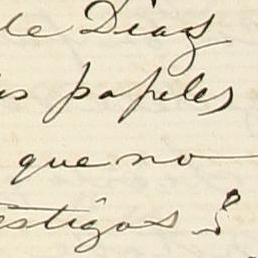 de Diaz
papeles
que no
estigos